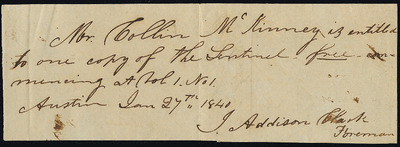 Mr. Collin McKinney is entitled
to one copy of the Sentinel - free - com-
mencing at Vol 1. No 1.
Austin Jan 27th 1840
J. Addison Clark
Foreman